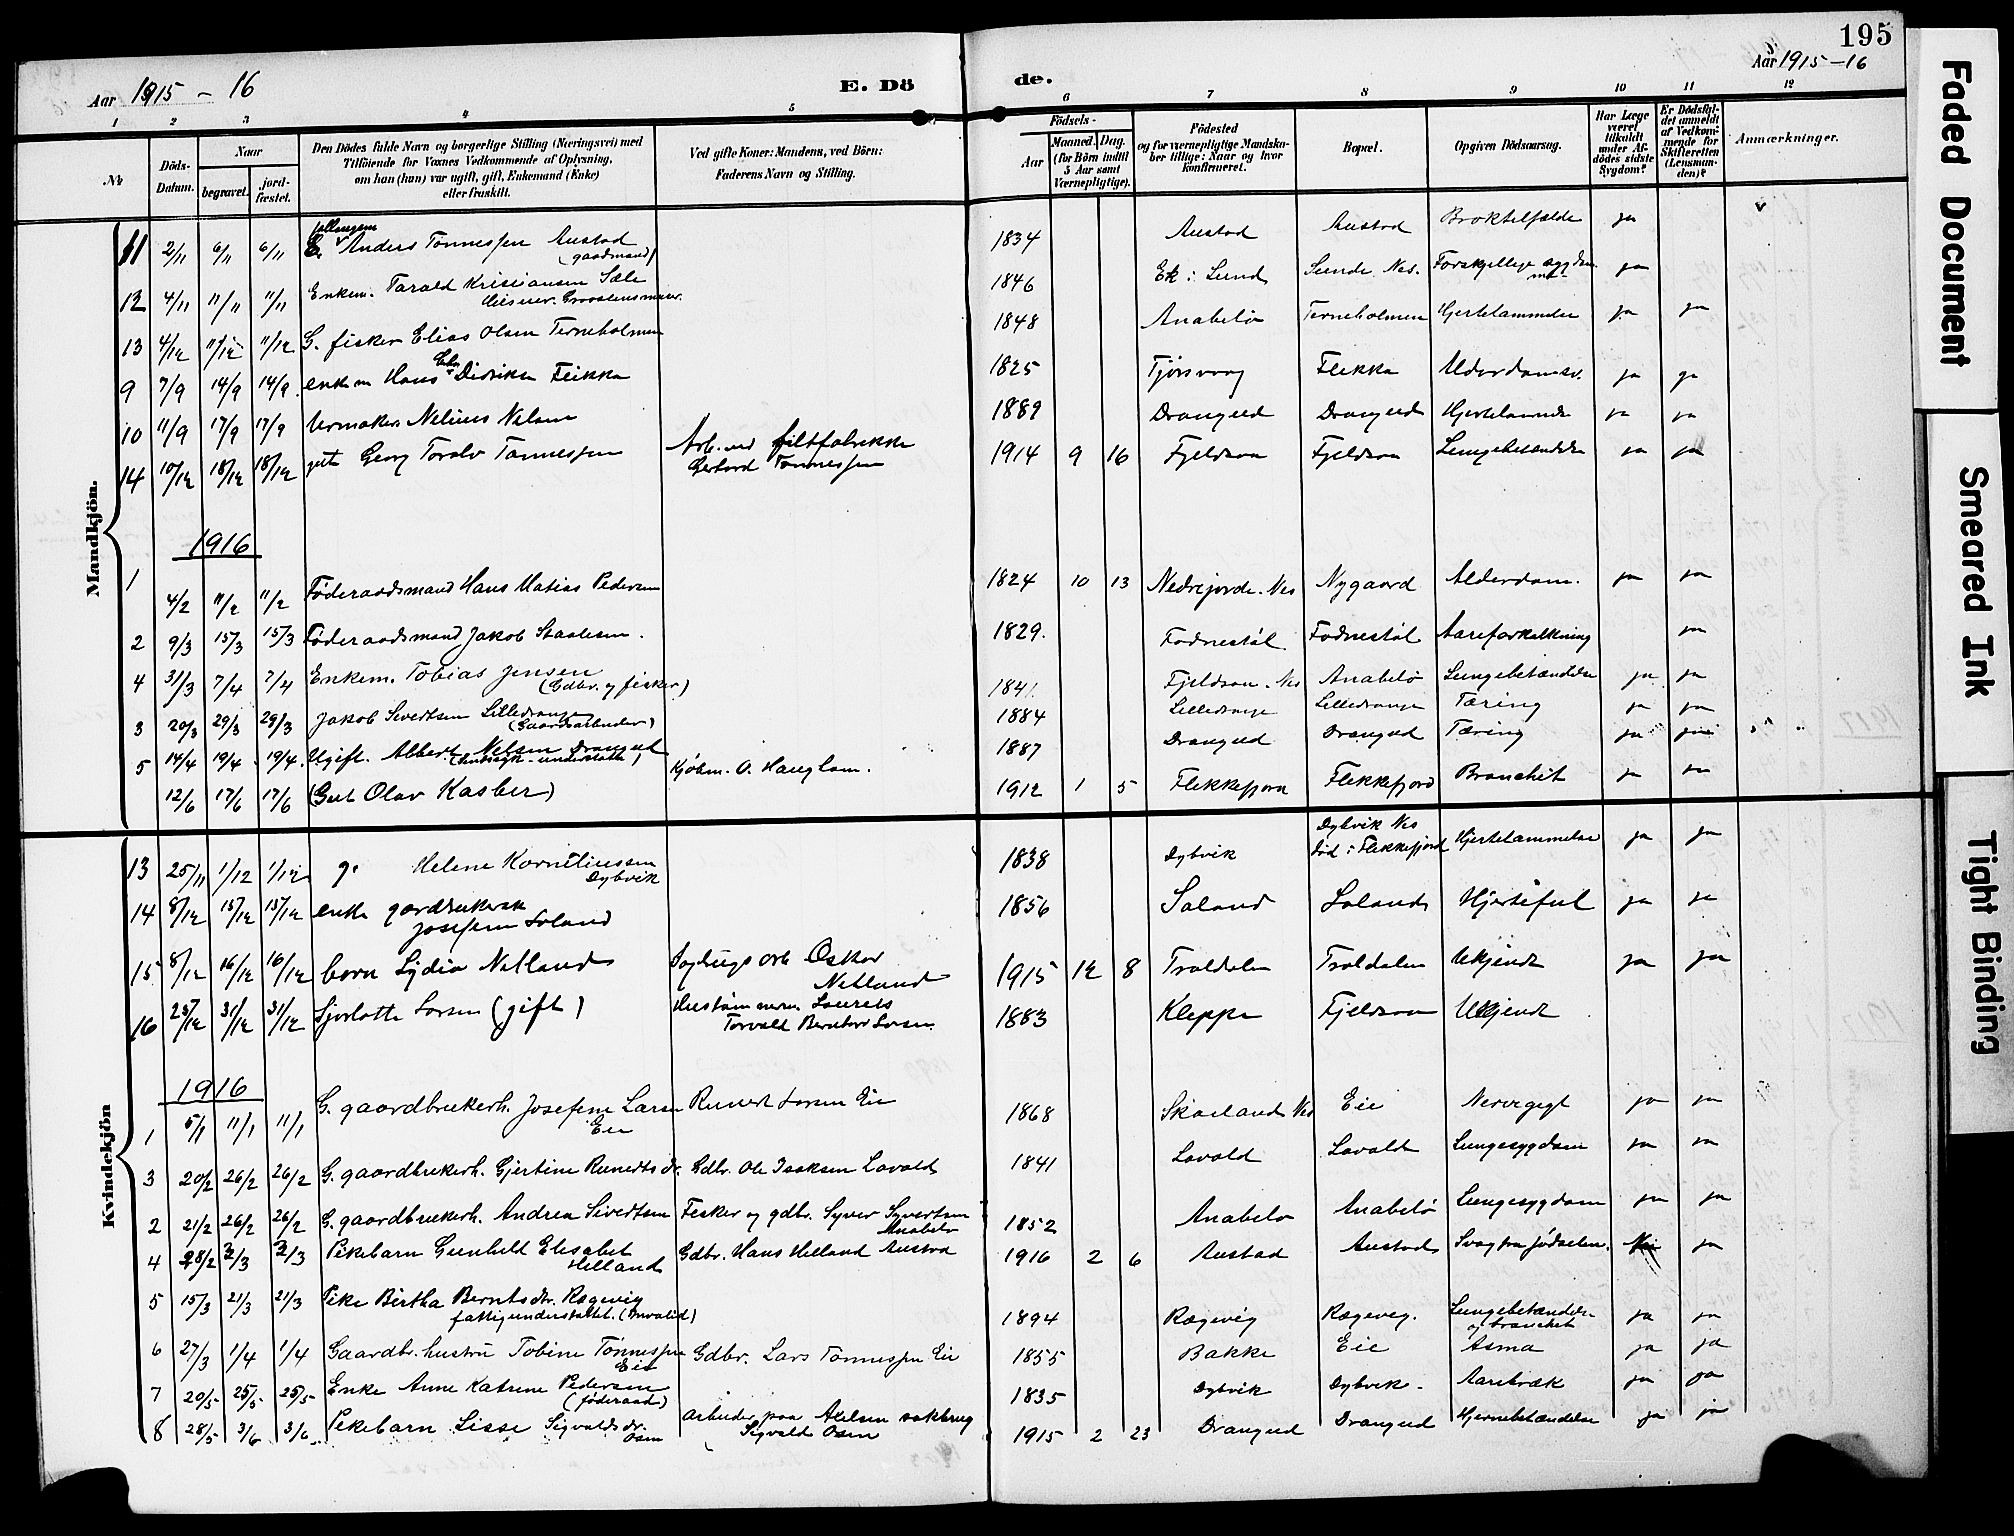 195
Aar 1915 – 16
E. Dö
de.
Aar 1915–16
1 2 3 4 5 6 7 8 9 10 11 12
№
Döds-Datum.
Naar
begravet.
jord-fæstet.
Den Dödes fulde Navn og borgerlige Stilling (Næringsvei) med
Tilföiende for Voxnes Vedkommende af Oplysning,
om han (hun) var ugift, gift, Enkemand (Enke)
eller fraskilt.
Ved gifte Koner: Mandens, ved Börn:
Faderens Navn og Stilling.
Födsels-
Aar
Maaned. Dag.
(for Börn indtil
5 Aar samt
Værnepligtige).
Födested
og for værnepligtige Mandska-
ber tillige: Naar og hvor
konfirmeret.
Bopæl.
Opgiven Dödsaarsag.
Har Læge
været
tilkaldt
under Af-
dödes sidste
Sygdom?
Er Dödsfal-
det anmeldt
af Vedkom-
mende for
Skifteretten
(Lensman-
den)?
Anmærkninger.
Mandkjön.
11 2/11 6/11 6/11 Anders Tønnessen Austad (gaardmand) 1834 Austad Austad Broktilfælde ja
12 4/11 11/11 11/11 Enkem. Tarald Kristiansen Sæle 1846 Lund Sunde Nes. Forskjellige sygdomme ja
13 4/12 11/12 11/12 G. fisker Elias Olsen Terneholmen 1848 Anabelø Terneholmen Hjertelammelse ja ja
9 7/9 14/9 14/9 enkem Hans Didriksen Feikka 1825 Tjørsvaag Flikka Alderdomsv. ja ja
10 11/9 17/9 17/9 Urmaker Nelius Nelsen 1889 Drangeid Drangeid Hjertelammelse ja ja
14 10/12 18/12 18/12 gut Georg Toralv Tønnessen Arb. ved filtfabrikke Gerhard Tønnessen 1914 9 16 Fjeldsaa Fjeldsaa Lungebetændelse ja ja
1916
1 4/2 11/2 11/2 Føderaadsmand Hans Matias Pedersen 1824 10 13 Nedrejorde. Nes Nygaard Alderdom. ja ja
2 9/3 15/3 15/3 Føderaadsmand Jakob Staalesen. 1829. Fodnestøl Fodnestøl Aareforkalkning ja
4 31/3 7/4 7/4 Enkem. Tobias Jensen (Gdbr. og fisker) 1841. Fjeldsaa. Nes Anabelø Lungebetændelse ja ja
3 20/3 29/3 29/3 Jakob Sivertsen Lilledrange (Gaardsarbeider) 1884 Lilledrange Lilledrange Tæring ja ja
5 14/4 19/4 19/4 Ugift. Albert Nelsen Drangeid 1887 Drangeid Drangeid Tæring ja ja
12/6 17/6 17/6 (Gut Olav Kasber) Kjøbm. O. Hauglam. 1912 1 5 Flekkefjord Flekkefjord Bronchit ja ja
Kvindekjön
13 25/11 1/12 1/12 g. Helene Kornelliussen Dybvik 1838 Dybvik Dybvik Nes død i Flekkefjord Hjertelammelse ja ja
14 8/12 15/12 15/12 enke gardbrukersk Josefine Soland 1856 Soland Soland Hjertefeil ja ja
15 8/12 16/12 16/12 barn Lydia Netland Sagbrugsarb Oskar Netland 1915 12 8 Troldalen Troldalen Ukjendt ja ja
16 25/12 31/12 31/12 Sjarlotte Larsen (gift) Torvald Bernhard Larsen 1883 Kleppe Fjeldsaa Ukjendt
1916
1 5/1 11/1 11/1 G. gaardbrukerh. Josefine Larsen Eie Runert Larsen Eie 1868 Skailand Nes Eie Nervegigt ja ja
3 20/2 26/2 26/2 G. gaardbrukerh. Gjertine Runertsdr. Gdbr. Ole Isaksen Lavold 1841 Lavold Lavold Lungesygdom ja ja
2 21/2 26/2 26/2 G. gaardbrukerh. Andrea Sivertsen Fisker og gdbr. Syver Syvertsen Anabelø 1852 Anabelø Anabelø Lungesygdom ja ja
4 28/2 2/3 2/3 Pikebarn Gunhild Elisabet Helland Gdbr. Hans Helland Austad 1916 2 6 Austad Austad Svag fra fødselen. Nei ja
5 15/3 21/3 21/3 Pike Birtha Berntsdr. Rægevig fattigunderstøttet. (Invalid) 1894 Rægevig Rægevig. Lungebetændelse og bronchit ja ja
6 27/3 1/4 1/4 Gaardbr. hustru Tobine Tønnessen Eie Gdbr. Lars Tønnessen Eie 1855 Bakke Eie Asma ja ja
7 20/5 25/5 25/5 Enke Anne Katrine Pedersen (føderaad) 1835 Dybvik Dybvik. Aarebræk ja ja
8 28/5 3/6 3/6 Pikebarn Lisse Sigvaldsdr. Osen arbeider paa Axelsen sakbrug Sigvald Osen 1915 2 23 Drangeid Drangeid Hjernebetændelse ja ja
Faded Document
Smeared Ink
Tight Binding